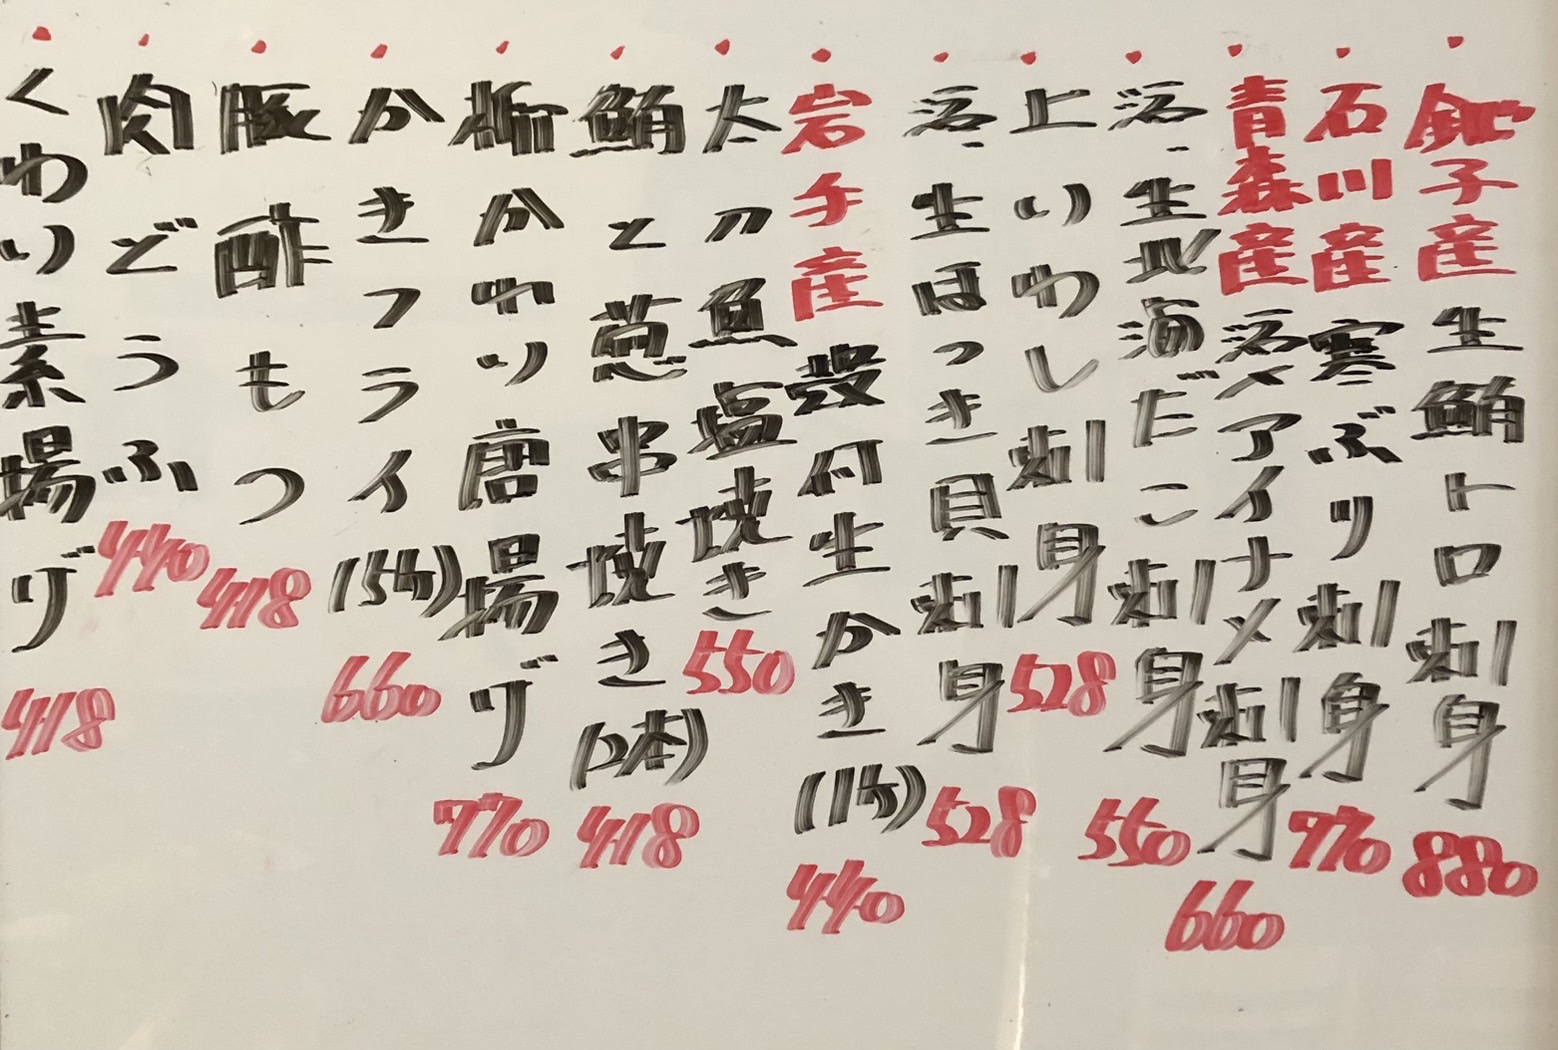 ・銚子産生鮪トロ刺身 880
・石川産寒ぶり刺身 770
・青森産活〆アイナメ刺身 660
・活生北海だこ刺身 550
・上いわし刺身 528
・活生ほっき貝刺身 528
・岩手産殻付生かき(1ケ) 440
・太刀魚塩焼き 550
・鮪と葱串焼き(2本) 418
・柳かれい唐揚げ 770
・かきフライ(5ケ) 660
・豚酢もつ 418
・肉どうふ 440
・くわい素揚げ 418